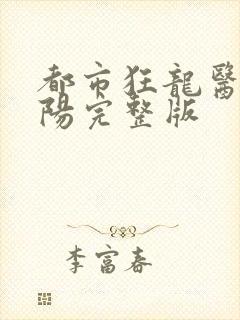 都市狂龍醫
陽完整版
李富春